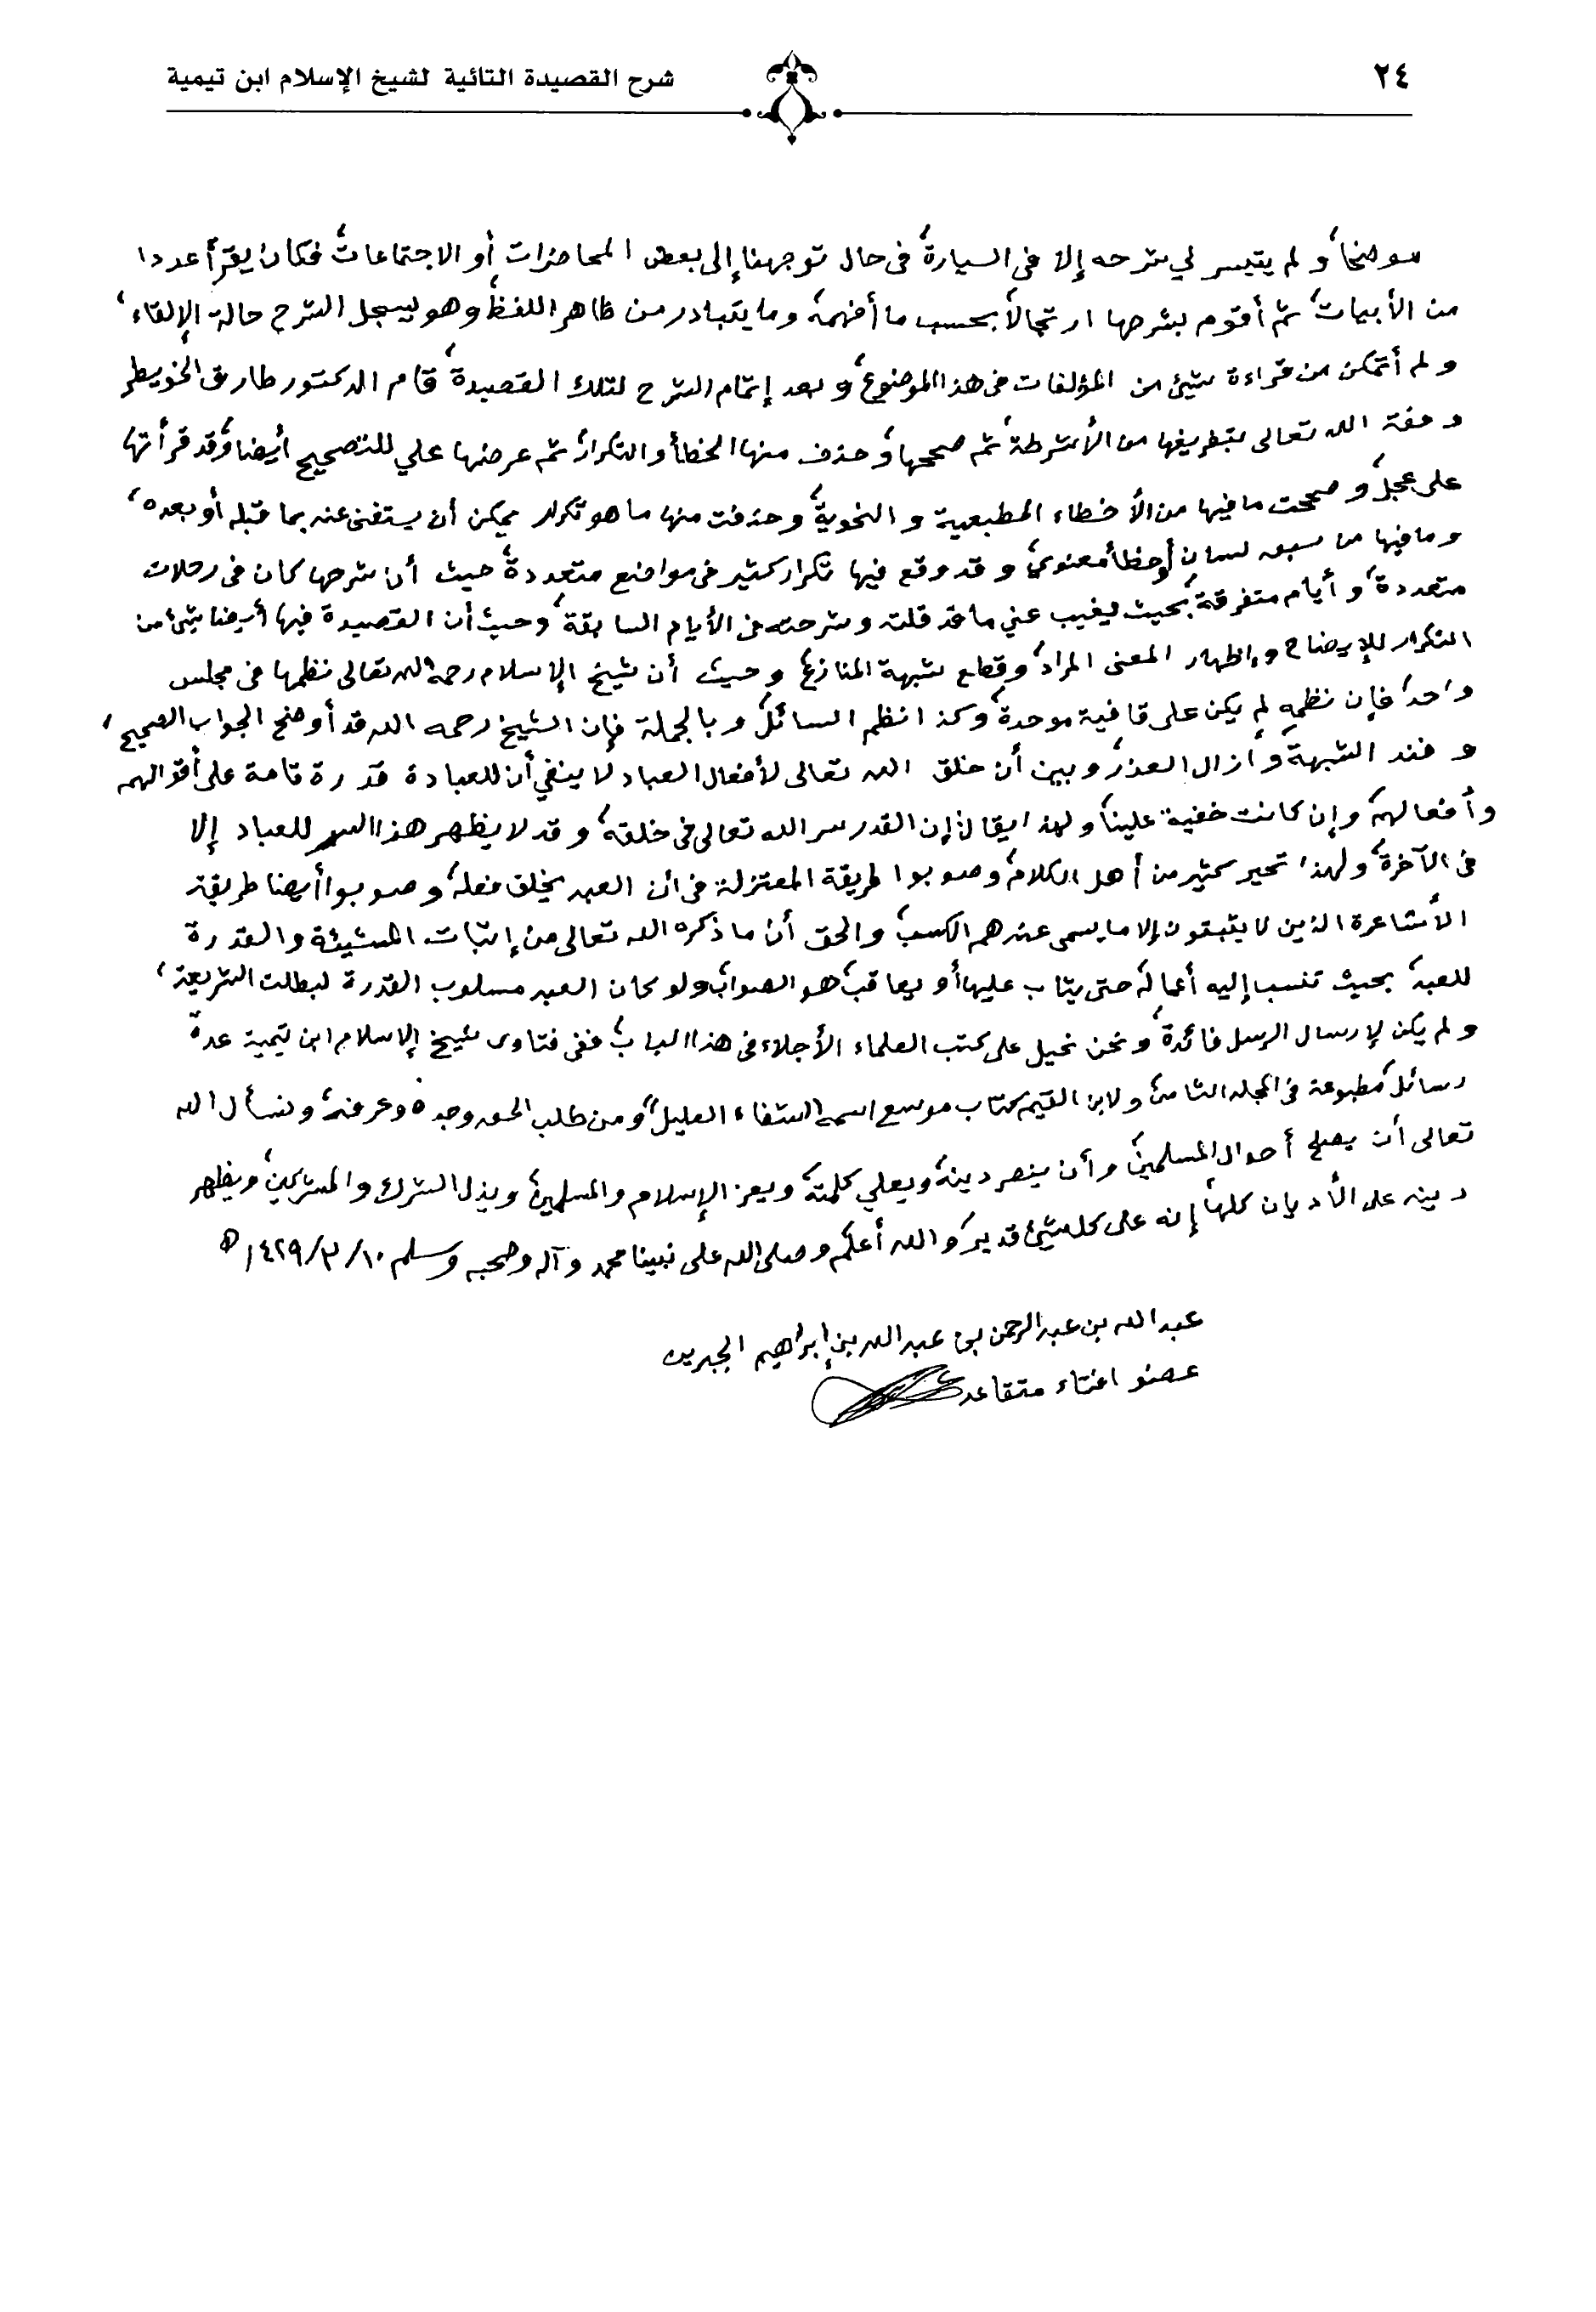 ٢٤
شرح القصيدة التائية لشيخ الإسلام ابن تيمية
موضحا، ولم يتيسر لي شرحه إلا في السيارة، في حال توجهنا إلى بعض المحاضرات أو الاجتماعات، فكان يقرأ عددا
من الأبيات، ثم أقوم بشرحها ارتجالا، بحسب ما أفهمه، وما يتبادر من ظاهر اللفظ، وهو يسجل الشرح حالة الإلقاء،
ولم أتمكن من قراءة شيئ من المؤلفات في هذا الموضوع، وبعد إتمام الشرح لتلك القصيدة، قام الدكتور طارق الخويطر
وفقه الله تعالى بتفريغها من الأشرطة، ثم صححها، وحذف منها الخطأ والتكرار، ثم عرضها علي للتصحيح أيضا، وقد قرأتها
على عجل، وصححت ما فيها من الأخطاء المطبعية والنحوية، وحذفت منها ما هو تكرار يمكن أن يستغنى عنه بما قبله أو بعده،
وما فيها من سبق لسان أو خطأ معنوي، وقد وقع فيها تكرار كثير في مواضع متعددة، حيث أن شرحها كان في رحلات
متعددة، وأيام متفرقة، بحيث يغيب عني ما قد قلته وشرحته في الأيام السابقة، وحيث أن القصيدة فيها أيضا شيئ من
التكرار للإيضاح وإظهار المعنى المراد، وقطع شبهة المنازع، وحيث أن شيخ الإسلام رحمه الله تعالى نظمها في مجلس
واحد، فإن نظمه لم يكن على قافية موحدة، وكذا نظم السائل، وبالجملة فإن الشيخ رحمه الله قد أوضح الجواب الصحيح،
وفند الشبهة، وأزال العذر، وبين أن خلق الله تعالى لأفعال العباد لا ينفي أن للعباد قدرة تامة على أقوالهم
وأفعالهم، وإن كانت خفية علينا، ولهذا يقال: إن القدر سر الله تعالى في خلقه، وقد لا يظهر هذا السر للعباد إلا
في الآخرة، ولهذا تحير كثير من أهل الكلام، وصوبوا طريقة المعتزلة في أن العبد يخلق فعله، وصوبوا أيضا طريقة
الأشاعرة الذين لا يثبتون إلا ما يسمى عندهم الكسب، والحق أن ما ذكره الله تعالى من إثبات المشيئة والقدرة
للعبد، بحيث تنسب إليه أعماله، حتى يثاب عليها أو يعاقب، هو الصواب، ولو كان العبد مسلوب القدرة لبطلت الشريعة،
ولم يكن لإرسال الرسل فائدة، ونحن نحيل على كتب العلماء الأجلاء في هذا الباب، ففي فتاوى شيخ الإسلام ابن تيمية عدة
رسائل، مطبوعة في المجلد الثامن، ولابن القيم كتاب موسع اسمه "شفاء العليل" ومن طلب الحق وجده وعرفه، ونسأل الله
تعالى أن يصلح أحوال المسلمين، وأن ينصر دينه، ويعلي كلمته، ويعز الإسلام والمسلمين، ويذل الشرك والمشركين، ويظهر
دينه على الأديان كلها، إنه على كل شيئ قدير، والله أعلم، وصلى الله على نبينا محمد وآله وصحبه وسلم ١٤٢٩/٣/١٠ه
عبد الله بن عبد الرحمن بن عبد الله بن إبراهيم الجبرين
عضو افتاء متقاعد